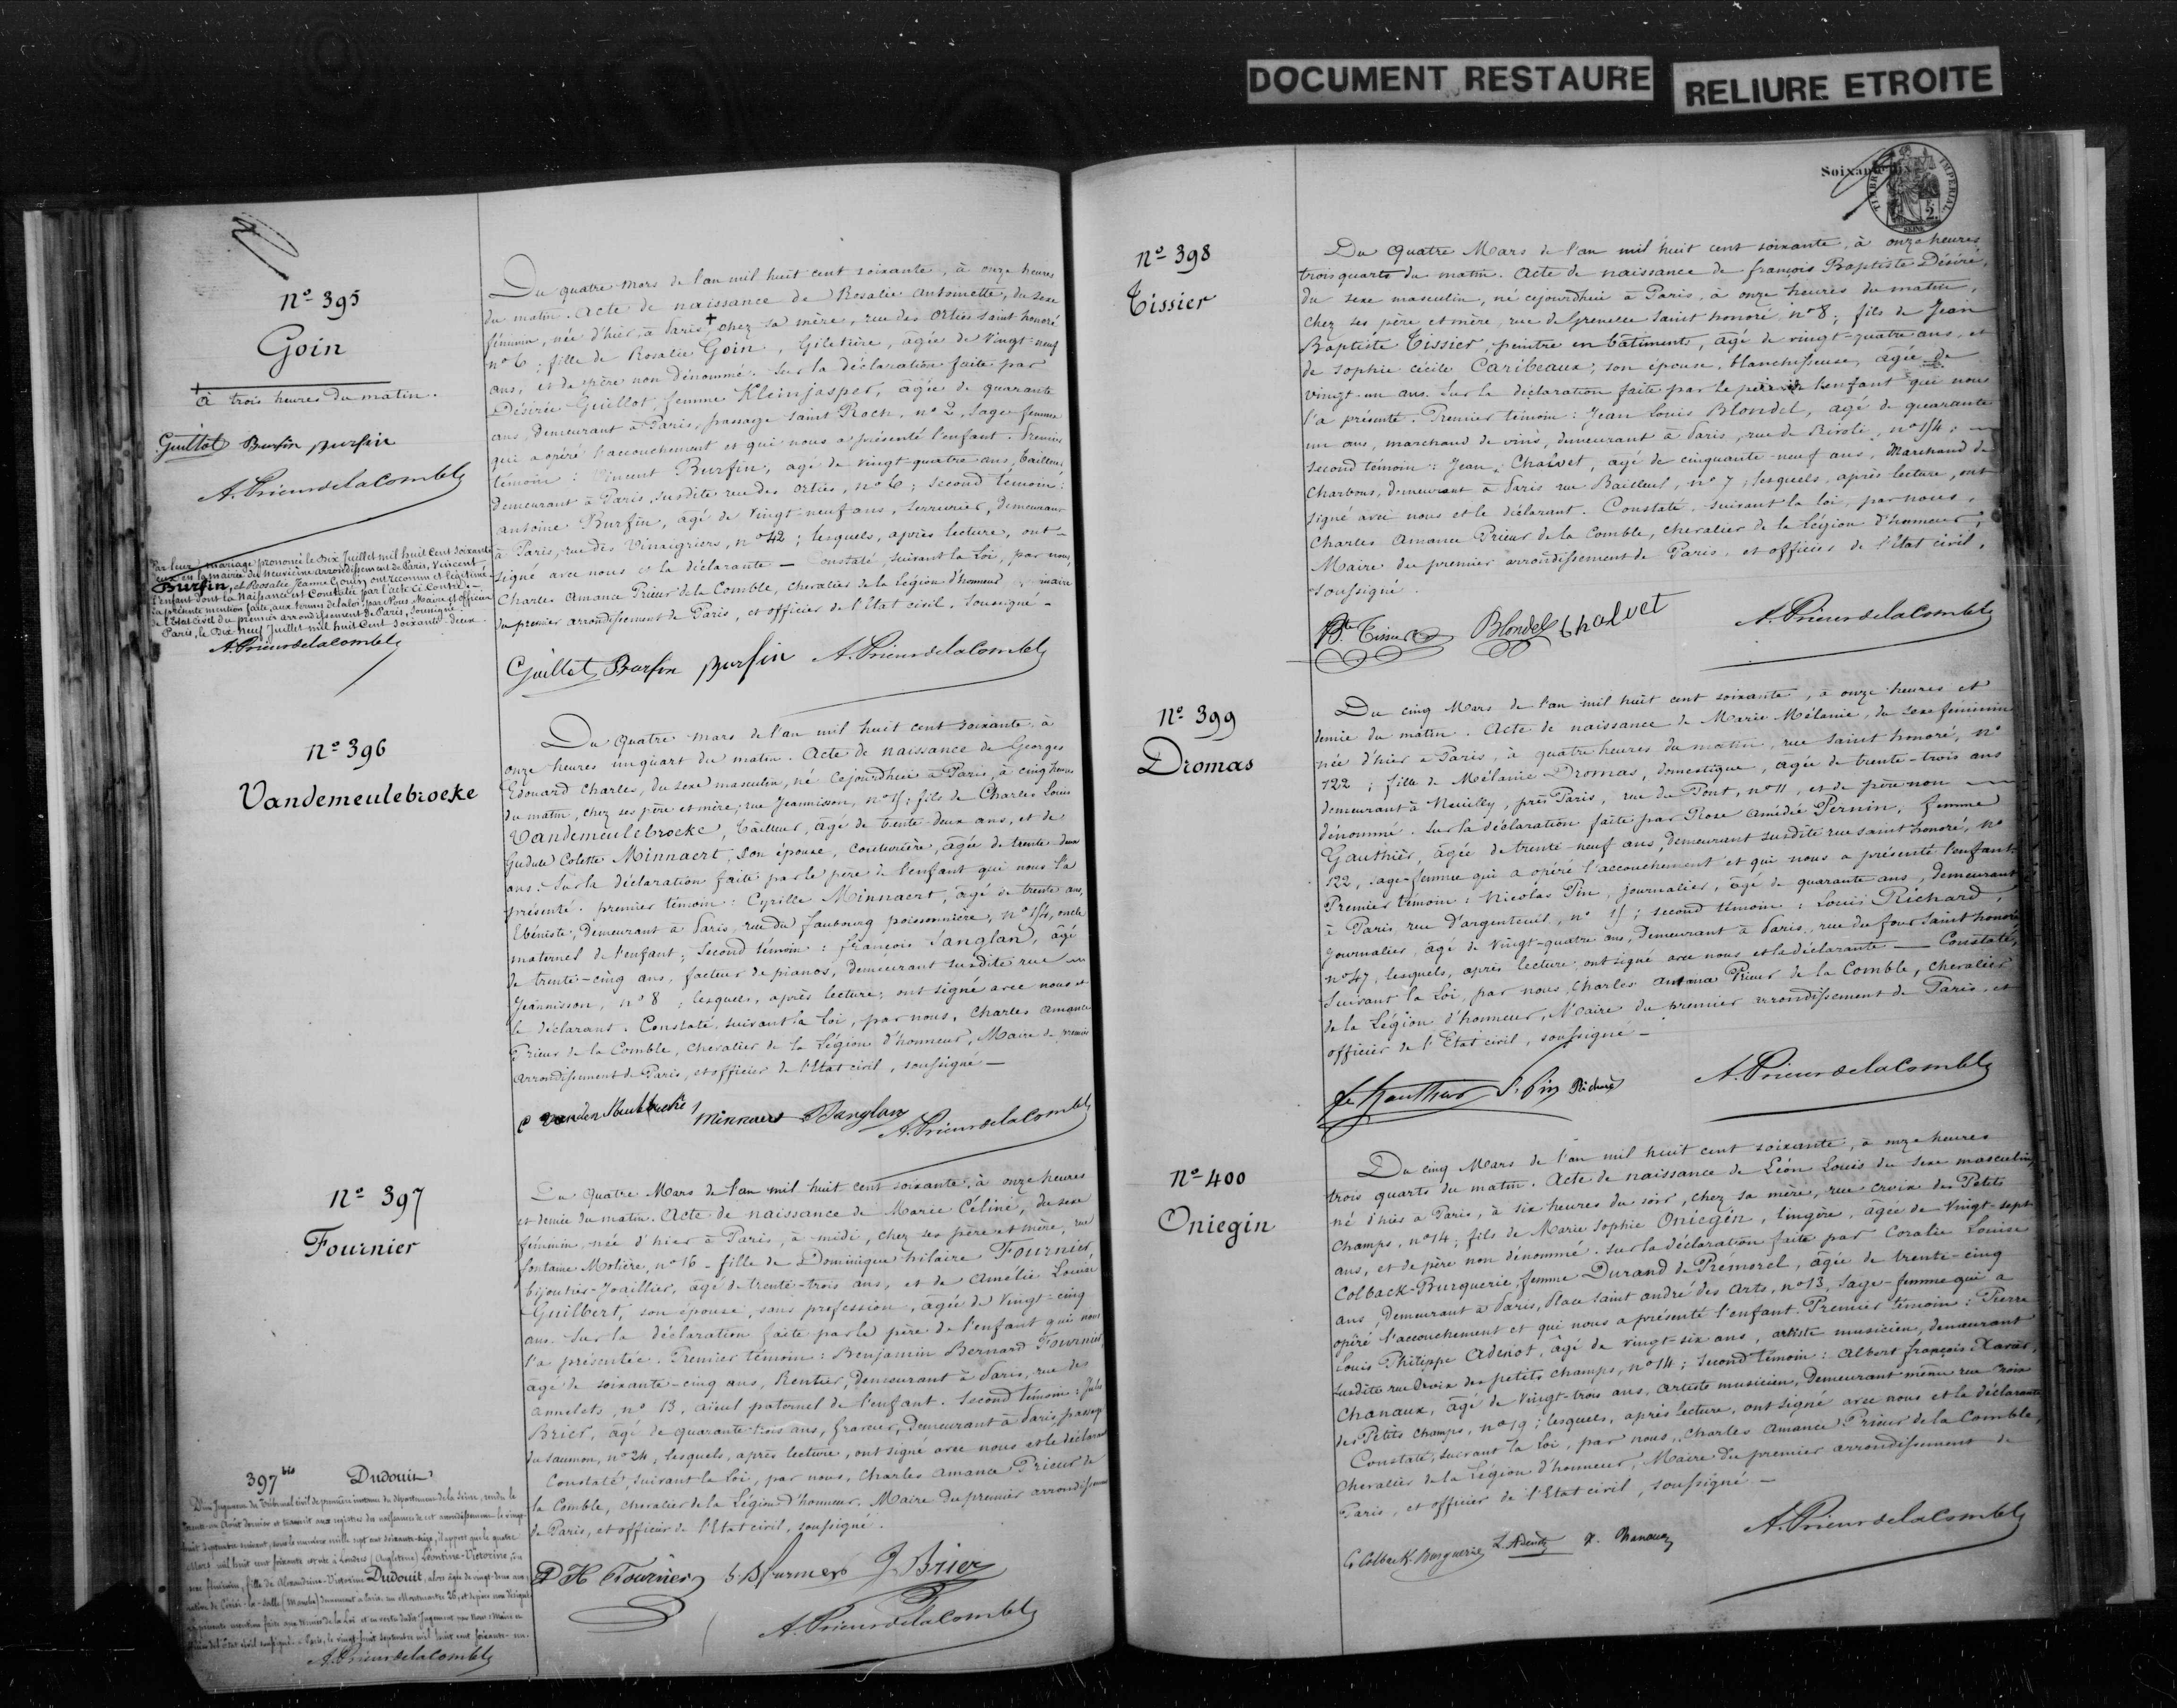 DOCUMENT RESTAURE
RELIURE ETROITE
Nº 395
Goin
à trois heures du matin.
Guillot Burfin Burfin
A. Prieur de la Comble
Par leur mariage prononcé le dix Juillet mil huit cent soixante
deux en la mairie du neuvième arrondissement de Paris, Vincent
Burfin, et Rosalie Jeanne Gouin ont reconnu et légitimé
l'enfant dont la naissance est constatée par l'acte ci-contre.
la présente mention faite, aux termes de la loi, par Nous Maire et officier
de l'Etat civil du premier arrondissement de Paris, soussigné.
Paris, le Dix neuf Juillet mil huit cent soixante-deux.
A. Prieur de la Comble
Du quatre mars de l'an mil huit cent soixante, à onze heures
du matin. Acte de naissance de Rosalie Antoinette, du sexe
féminin, née d'hier, à Paris + chez sa mère, rue des Orties saint honoré
nº 6; fille de Rosalie Goin, Giletière, âgée de vingt-neuf
ans, et de père non dénommé. Sur la déclaration faite par
Désirée Guillot, femme Kleinjasper, âgée de quarante
ans, demeurant à Paris, passage saint Roch, nº 2, Sage-femme
qui a opéré l'accouchement et qui nous a présenté l'enfant. Premier
témoin: Vincent Burfin, agé de vingt-quatre ans, tailleur,
demeurant à Paris, susdite rue des Orties, nº 6; second témoin:
antoine Burfin, agé de vingt-neuf ans, serrurier, demeurant
à Paris, rue des Vinaigriers, nº 42; lesquels, après lecture, ont
signé avec nous et la déclarante — Constaté, suivant la loi, par nous,
Charles Amance Prieur de la Comble, chevalier de la Légion d'honneur, maire
du premier arrondissement de Paris, et officier de l'Etat civil, soussigné —
Guillot Burfin Burfin A. Prieur de la Comble
Nº 396
Vandemeulebrocke
Du Quatre mars de l'an mil huit cent soixante, à
onze heures un quart du matin. Acte de naissance de Georges
Edouard Charles, du sexe masculin, né cejourd'hui à Paris, à cinq heures
du matin, chez ses père et mère, rue Jeannisson, nº 15; fils de Charles Louis
Vandemeulebrocke, tailleur, âgé de trente-deux ans, et de
Gudule Colette Minnaert, son épouse, couturière, âgée de trente-deux
ans. Sur la déclaration faite par le père de l'enfant qui nous l'a
présenté. premier témoin: Cyrille Minnaert, âgé de trente ans,
Ebéniste, demeurant à Paris, rue du faubourg poissonnière, nº 154, oncle
maternel de l'enfant; Second témoin: françois Sanglan, âgé
de trente-cinq ans, facteur de pianos, demeurant susdite rue
Jeannisson, nº 8; lesquels, après lecture, ont signé avec nous et
le déclarant. Constaté, suivant la loi, par nous, Charles Amance
Prieur de la Comble, chevalier de la Légion d'honneur, Maire du premier
arrondissement de Paris, et officier de l'Etat civil, soussigné —
Minnaert Sanglan
A. Prieur de la Comble
Nº 397
Fournier
Du Quatre Mars de l'an mil huit cent soixante, à onze heures
et demie du matin. Acte de naissance de Marie Céline, du sexe
féminin, née d'hier à Paris, à midi, chez ses père et mère, rue
fontaine Molière, nº 16 – fille de Dominique hilaire Fournier,
bijoutier-Joaillier, âgé de trente-trois ans, et de Amélie Louise
Guilbert, son épouse, sans profession, âgée de vingt-cinq
ans. Sur la déclaration faite par le père de l'enfant qui nous
l'a présentée. Premier témoin: Benjamin Bernard Fournier,
âgé de soixante-cinq ans, Rentier, demeurant à Paris, rue des
Amelets, nº 13, aïeul paternel de l'enfant. Second témoin: Jules
Brier, âgé de quarante-trois ans, Graveur, demeurant à Paris, passage
du saumon, nº 24, lesquels, après lecture, ont signé avec nous et le déclarant
Constaté, suivant la loi, par nous, Charles Amance Prieur de
la Comble, chevalier de la Légion d'honneur, Maire du premier arrondissement
de Paris, et officier de l'Etat civil, soussigné.
D H Fournier J. Brier
A. Prieur de la Comble
397 bis Dudouit
D'un Jugement du Tribunal civil de première instance du département de la Seine, rendu le
Trente-un Août dernier et transcrit aux registres des naissances de cet arrondissement le vingt-
huit Septembre suivant, sous le numéro mille sept cent soixante-seize, il appert que le quatre
Mars mil huit cent soixante est née à Londres (Angleterre) Léontine-Victorine, du
sexe féminin, fille de Alexandrine-Victorine Dudouit, alors âgée de vingt-deux ans,
native de Cérisi-la-Salle (Manche) demeurant à Paris, rue Montmartre 26, et de père non désigné
La présente mention faite aux termes de la Loi et en vertu dudit Jugement par Nous Maire et
officier de l'état civil soussigné. – Paris, le vingt-huit septembre mil huit cent soixante-un.
A. Prieur de la Comble
Soixante
TIMBRE IMPERIAL
SEINE
Nº 398
Tissier
Du Quatre Mars de l'an mil huit cent soixante, à onze heures
trois quarts du matin. Acte de naissance de françois Baptiste Désiré,
du sexe masculin, né cejourd'hui à Paris, à onze heures du matin,
chez ses père et mère, rue de Grenelle saint honoré, nº 8; fils de Jean
Baptiste Tissier, peintre en bâtiments, âgé de vingt-quatre ans, et
de Sophie Cécile Caribeaux, son épouse, blanchisseuse, âgée de
vingt-un ans. Sur la déclaration faite par le père de l'enfant qui nous
l'a présenté. Premier témoin: Jean Louis Blondel, agé de quarante
un ans, marchand de vins, demeurant à Paris, rue de Rivoli, nº 154;
Second témoin: Jean Chalvet, agé de cinquante-neuf ans, Marchand de
Charbons, demeurant à Paris rue Bailleul, nº 7, lesquels, après lecture, ont
signé avec nous et le déclarant. Constaté, suivant la loi, par nous,
Charles Amance Prieur de la Comble, chevalier de la Légion d'honneur,
Maire du premier arrondissement de Paris, et officier de l'Etat civil,
soussigné.
Bte Tissier Blondel Chalvet A. Prieur de la Comble
Nº 399
Dromas
Du cinq Mars de l'an mil huit cent soixante, à onze heures et
demie du matin. Acte de naissance de Marie Mélanie, du sexe féminin
née d'hier à Paris, à quatre heures du matin, rue Saint honoré, nº
122; fille de Mélanie Dromas, domestique, agée de trente-trois ans
demeurant à Neuilly, près Paris, rue du Pont, nº 11, et de père non
dénommé. Sur la déclaration faite par Rose Amédée Pernin, femme
Gauthier, âgée de trente-neuf ans, demeurant susdite rue saint honoré, nº
122, sage-femme qui a opéré l'accouchement et qui nous a présenté l'enfant.
Premier témoin: Nicolas Pin, journalier, âgé de quarante ans, demeurant
à Paris, rue d'argenteuil, nº 15; second témoin: Louis Richard,
Journalier, âgé de vingt-quatre ans, demeurant à Paris, rue du four Saint honoré
nº 47, lesquels, après lecture, ont signé avec nous et la déclarante — Constaté,
Suivant la Loi, par nous, Charles Amance Prieur de la Comble, chevalier
de la Légion d'honneur, Maire du premier arrondissement de Paris, et
officier de l'Etat civil, soussigné —
fe Gauthier Pin Richard A. Prieur de la Comble
Nº 400
Oniegin
Du cinq Mars de l'an mil huit cent soixante, à onze heures
trois quarts du matin. Acte de naissance de Léon Louis du sexe masculin,
né d'hier à Paris, à six heures du soir, chez sa mère, rue croix des Petits
Champs, nº 14; fils de Marie Sophie Oniegin, lingère, agée de vingt-sept
ans, et de père non dénommé. Sur la déclaration faite par Coralie Louise
Colback-Burguerie, femme Durand de Prémorel, âgée de trente-cinq
ans, demeurant à Paris, Place saint andré des Arts, nº 13, Sage-femme qui a
opéré l'accouchement et qui nous a présenté l'enfant. Premier témoin: Pierre
Louis Philippe Adenot, âgé de vingt-six ans, artiste musicien, demeurant
susdite rue Croix des petits champs, nº 14; second témoin: Albert françois Xavier,
Chanaux, âgé de vingt-trois ans, artiste musicien, demeurant même rue Croix
des Petits champs, nº 19; lesquels, après lecture, ont signé avec nous et la déclarante
Constaté, suivant la loi, par nous, Charles Amance Prieur de la Comble,
Chevalier de la Légion d'honneur, Maire du premier arrondissement de
Paris, et officier de l'Etat civil, soussigné —
C Colback Burguerie L. Adenot Chanaux A. Prieur de la Comble